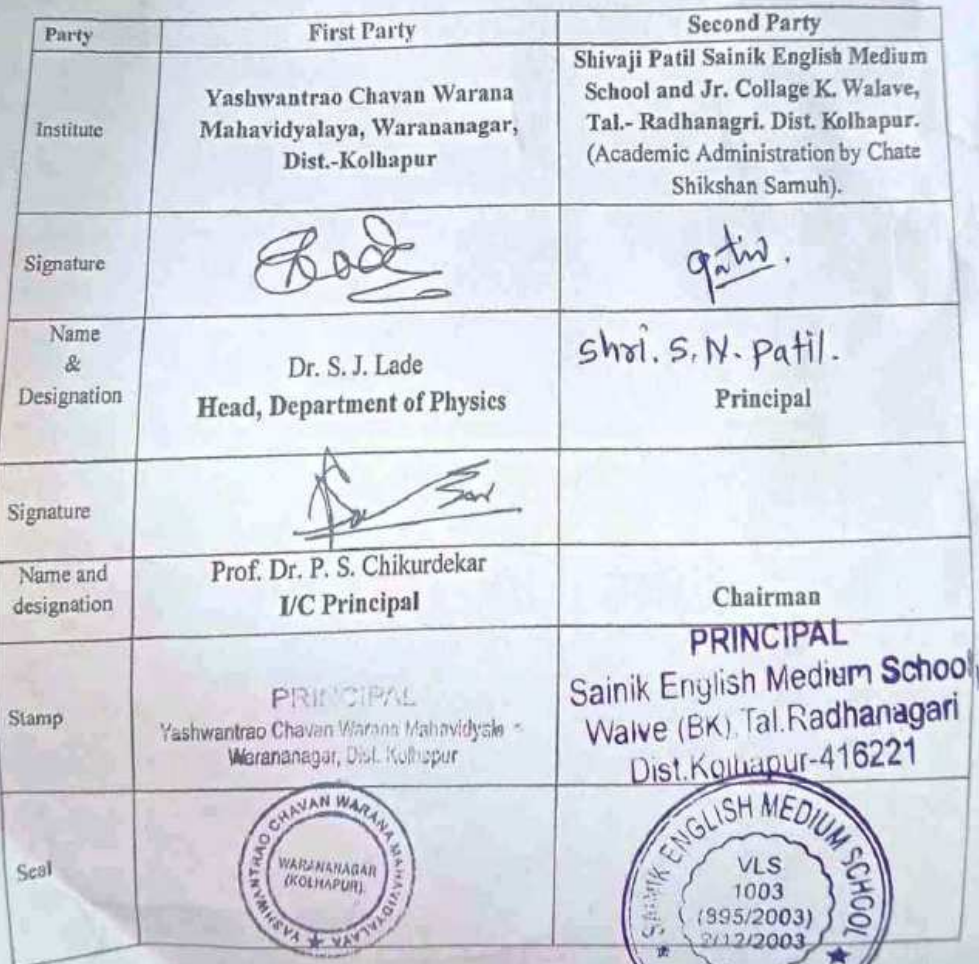 Party First Party Second Party
Institute
Yashwantrao Chavan Warana
Mahavidyalaya, Warananagar,
Dist.-Kolhapur
Shivaji Patil Sainik English Medium
School and Jr. Collage K. Walave,
Tal.- Radhanagri. Dist. Kolhapur.
(Academic Administration by Chate
Shikshan Samuh).
Signature
Name
&
Designation
Dr. S. J. Lade
Head, Department of Physics
Shri. S. N. Patil.
Principal
Signature
Name and
designation
Prof. Dr. P. S. Chikurdekar
I/C Principal
Chairman
Stamp
PRINCIPAL
Yashwantrao Chavan Warana Mahavidyala
Warananagar, Dist. Kolhapur
PRINCIPAL
Sainik English Medium School
Walve (BK), Tal.Radhanagari
Dist.Kolhapur-416221
Seal
YASHWANTRAO CHAVAN WARANA MAHAVIDYALAYA
WARANANAGAR
(KOLHAPUR)
SAINIK ENGLISH MEDIUM SCHOOL
VLS
1003
(895/2003)
2/12/2003